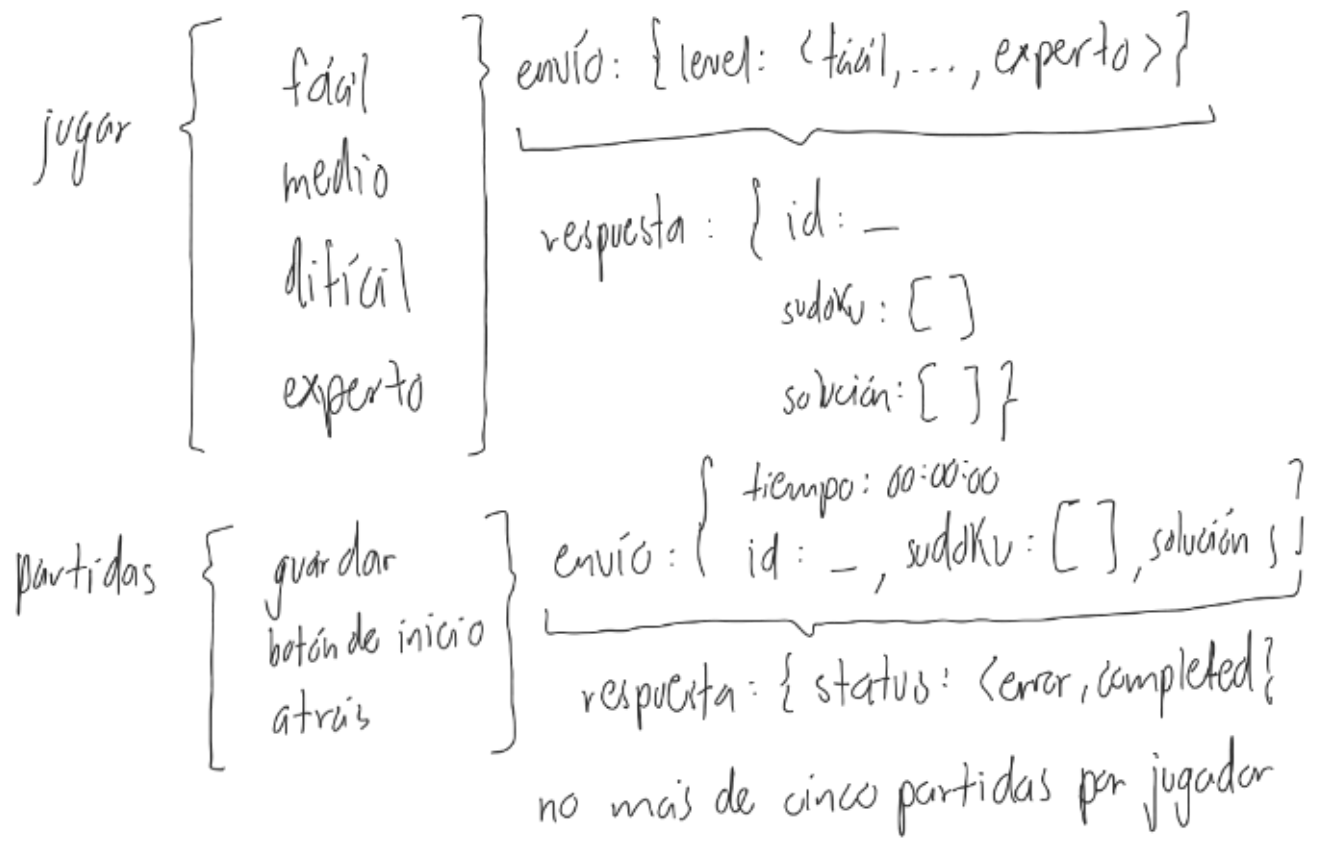 jugar
fácil
medio
difícil
experto
envío: {level: <fácil, ..., experto>}
respuesta: {id: _
sudoku: []
solución: []}
partidas
guardar
botón de inicio
atrás
envío: {tiempo: 00:00:00
id: _, sudoku: [], solución}
respuesta: {status: <error, completed}
no más de cinco partidas por jugador